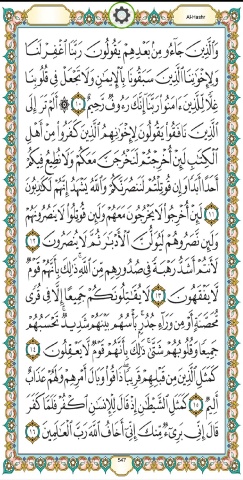 Al-Hashr
وَالَّذِينَ جَاءُو مِنْ بَعْدِهِمْ يَقُولُونَ رَبَّنَا اغْفِرْ لَنَا
وَلِإِخْوَانِنَا الَّذِينَ سَبَقُونَا بِالْإِيمَانِ وَلَا تَجْعَلْ فِي قُلُوبِنَا
غِلًّا لِلَّذِينَ ءَامَنُوا رَبَّنَا إِنَّكَ رَءُوفٌ رَحِيمٌ ١٠ أَلَمْ تَرَ إِلَى
الَّذِينَ نَافَقُوا يَقُولُونَ لِإِخْوَانِهِمُ الَّذِينَ كَفَرُوا مِنْ أَهْلِ
الْكِتَابِ لَئِنْ أُخْرِجْتُمْ لَنَخْرُجَنَّ مَعَكُمْ وَلَا نُطِيعُ فِيكُمْ
أَحَدًا أَبَدًا وَإِنْ قُوتِلْتُمْ لَنَنْصُرَنَّكُمْ وَاللَّهُ يَشْهَدُ إِنَّهُمْ لَكَاذِبُونَ
١١ لَئِنْ أُخْرِجُوا لَا يَخْرُجُونَ مَعَهُمْ وَلَئِنْ قُوتِلُوا لَا يَنْصُرُونَهُمْ
وَلَئِنْ نَصَرُوهُمْ لَيُوَلُّنَّ الْأَدْبَارَ ثُمَّ لَا يُنْصَرُونَ ١٢
لَأَنْتُمْ أَشَدُّ رَهْبَةً فِي صُدُورِهِمْ مِنَ اللَّهِ ذَلِكَ بِأَنَّهُمْ قَوْمٌ
لَا يَفْقَهُونَ ١٣ لَا يُقَاتِلُونَكُمْ جَمِيعًا إِلَّا فِي قُرًى
مُحَصَّنَةٍ أَوْ مِنْ وَرَاءِ جُدُرٍ بَأْسُهُمْ بَيْنَهُمْ شَدِيدٌ تَحْسَبُهُمْ
جَمِيعًا وَقُلُوبُهُمْ شَتَّى ذَلِكَ بِأَنَّهُمْ قَوْمٌ لَا يَعْقِلُونَ ١٤
كَمَثَلِ الَّذِينَ مِنْ قَبْلِهِمْ قَرِيبًا ذَاقُوا وَبَالَ أَمْرِهِمْ وَلَهُمْ عَذَابٌ
أَلِيمٌ ١٥ كَمَثَلِ الشَّيْطَانِ إِذْ قَالَ لِلْإِنْسَانِ اكْفُرْ فَلَمَّا كَفَرَ
قَالَ إِنِّي بَرِيءٌ مِنْكَ إِنِّي أَخَافُ اللَّهَ رَبَّ الْعَالَمِينَ ١٦
547